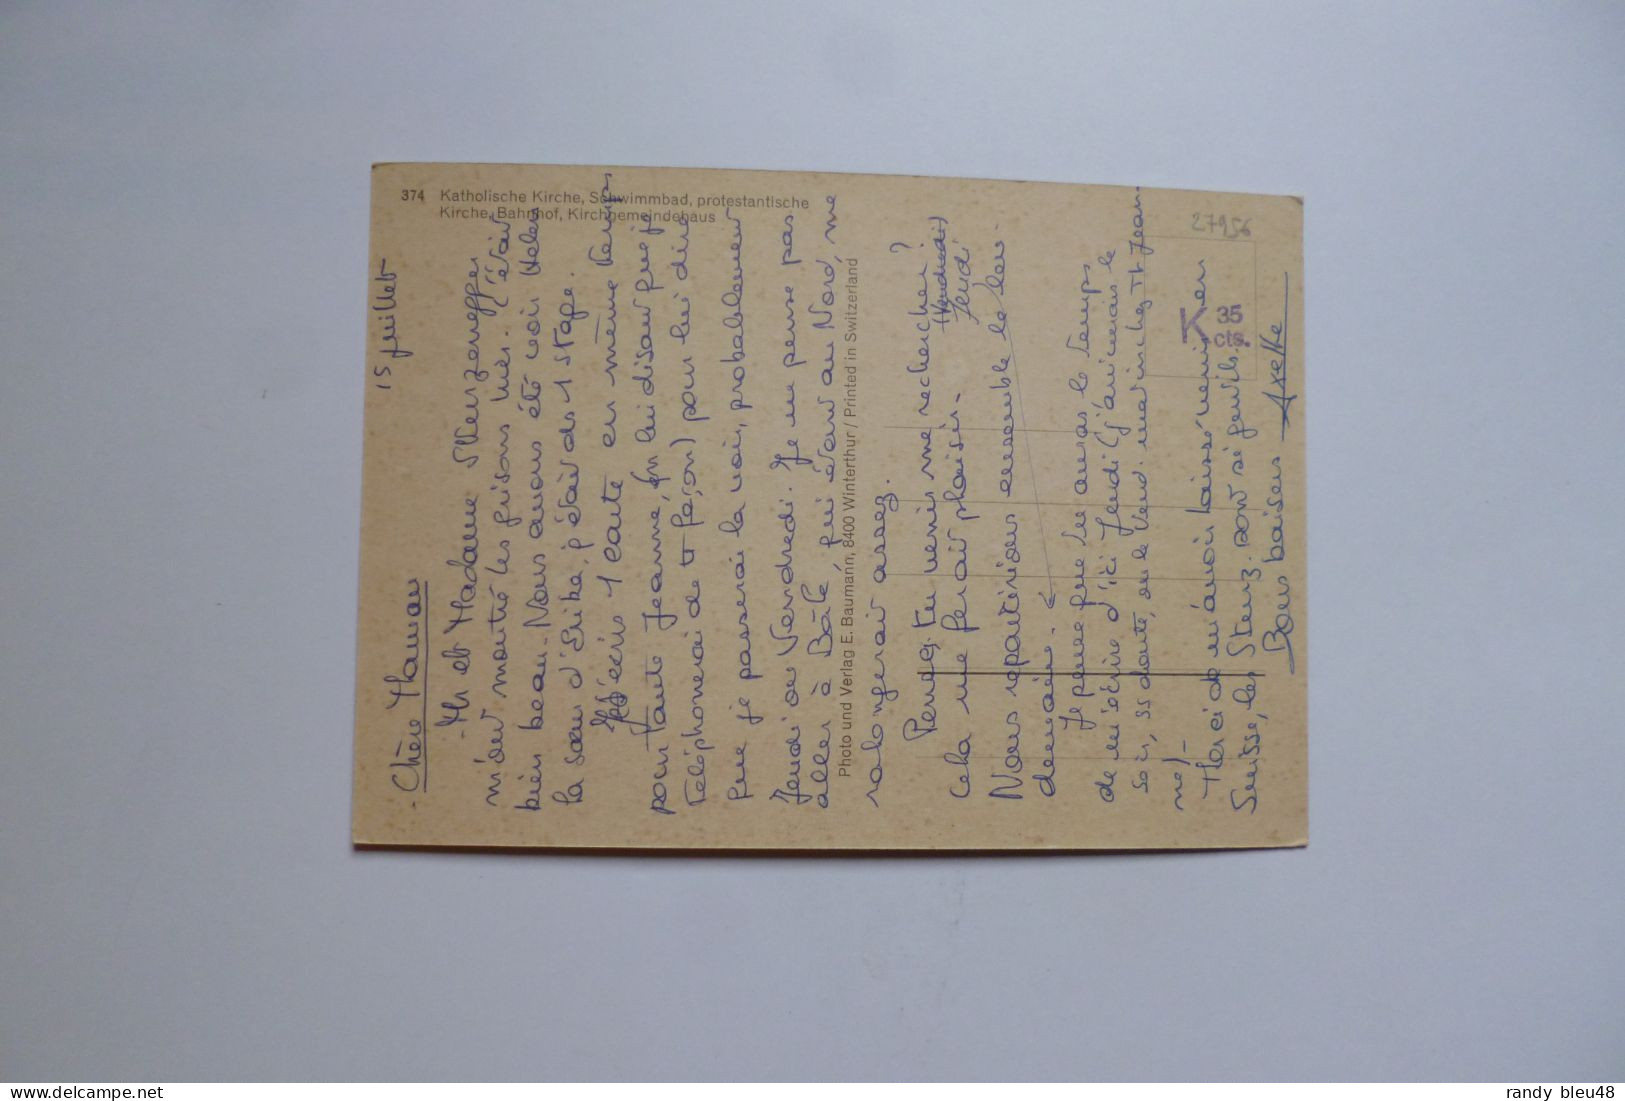 15 juillet
- Chère Maman
- Mr et Madame
m'ont montré les prisons hier. C'était
bien beau. Nous avons été voir
la sœur d'Erika, p était ds 1 stage.
J'écris 1 carte en même temps
pour Tante Jeanne, en lui disant que je
téléphonerai de tt façon) pour lui dire
que je passerai la voir, probablement
Jeudi ou Vendredi. Je ne pense pas
aller à Bâle, qui étant au Nord, me
ralongerait assez.
Penses-tu venir me rechercher?
(Vendredi)
Jeudi
cela me ferait plaisir.
Nous repartirions ensemble le len-
demain.
Je pense que tu auras le temps
de m'écrire d'ici Jeudi (j'arriverais le
soir, ss doute, ou le Vend. matin chez Tt Jean-
ne) -
Merci de m'avoir laissé venir en
Suisse, les Sterz. sont si gentils.
Bons baisers Axelle
374 Katholische Kirche, Schwimmbad, protestantische
Kirche, Bahnhof, Kirchgemeindehaus
Photo und Verlag E. Baumann, 8400 Winterthur / Printed in Switzerland
27956
K 35
cts.
randy bleu48